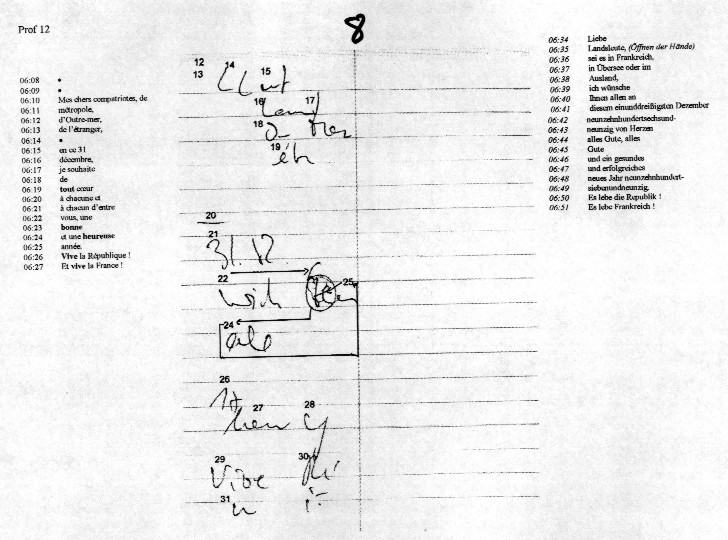 Prof 12
8
06:08 •
06:09 •
06:10 Mes chers compatriotes, de
06:11 métropole,
06:12 d'Outre-mer,
06:13 de l'étranger,
06:14 •
06:15 en ce 31
06:16 décembre,
06:17 je souhaite
06:18 de
06:19 tout cœur
06:20 à chacune et
06:21 à chacun d'entre
06:22 vous, une
06:23 bonne
06:24 et une heureuse
06:25 année.
06:26 Vive la République !
06:27 Et vive la France !
12 14
13 15
16 17
18
19
20
21
31. 12
22 25
24
26
27 28
29 30
Vive
31
06:34 Liebe
06:35 Landsleute, (Öffnen der Hände)
06:36 sei es in Frankreich,
06:37 in Übersee oder im
06:38 Ausland,
06:39 ich wünsche
06:40 Ihnen allen an
06:41 diesem einunddreißigsten Dezember
06:42 neunzehnhundertsechsund-
06:43 neunzig von Herzen
06:44 alles Gute, alles
06:45 Gute
06:46 und ein gesundes
06:47 und erfolgreiches
06:48 neues Jahr neunzehnhundert-
06:49 siebenundneunzig.
06:50 Es lebe die Republik !
06:51 Es lebe Frankreich !